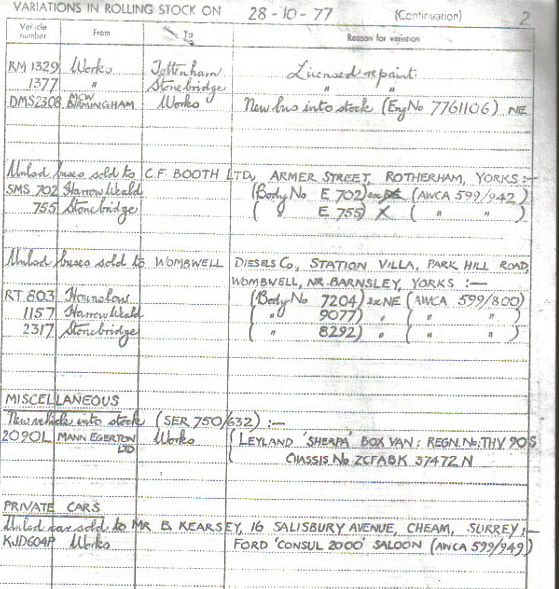 VARIATIONS IN ROLLING STOCK ON 28-10-77 (Continuation) 2
Vehicle number From To Reason for variation
RM 1329 Works Tottenham Licensed repaint.
1377 " Stonebridge " "
DMS2308 MCW BIRMINGHAM Works New bus into stock (Eng No 7761106) NE
Unlsd buses sold to C.F. BOOTH LTD, ARMER STREET, ROTHERHAM, YORKS :-
SMS 702 Harrow Weald (Body No E 702) (AWCA 599/942)
755 Stonebridge ( " E 755) X ( " " )
Unlsd buses sold to WOMBWELL DIESELS Co., STATION VILLA, PARK HILL ROAD,
WOMBWELL, NR. BARNSLEY, YORKS :-
RT 803 Hounslow (Body No 7204) ex NE (AWCA 599/800)
1157 Harrow Weald ( " 9077) " ( " " )
2317 Stonebridge ( " 8292) " ( " " )
MISCELLANEOUS
New vehicle into stock (SER 750/632) :-
2090L MANN EGERTON LTD Works (LEYLAND 'SHERPA' BOX VAN: REGN. No. THV 90S
CHASSIS No ZCFABK 37472 N
PRIVATE CARS
Unlsd car sold to MR B. KEARSEY, 16 SALISBURY AVENUE, CHEAM, SURREY :-
KJD604P Works FORD 'CONSUL 2000' SALOON (AWCA 599/949)